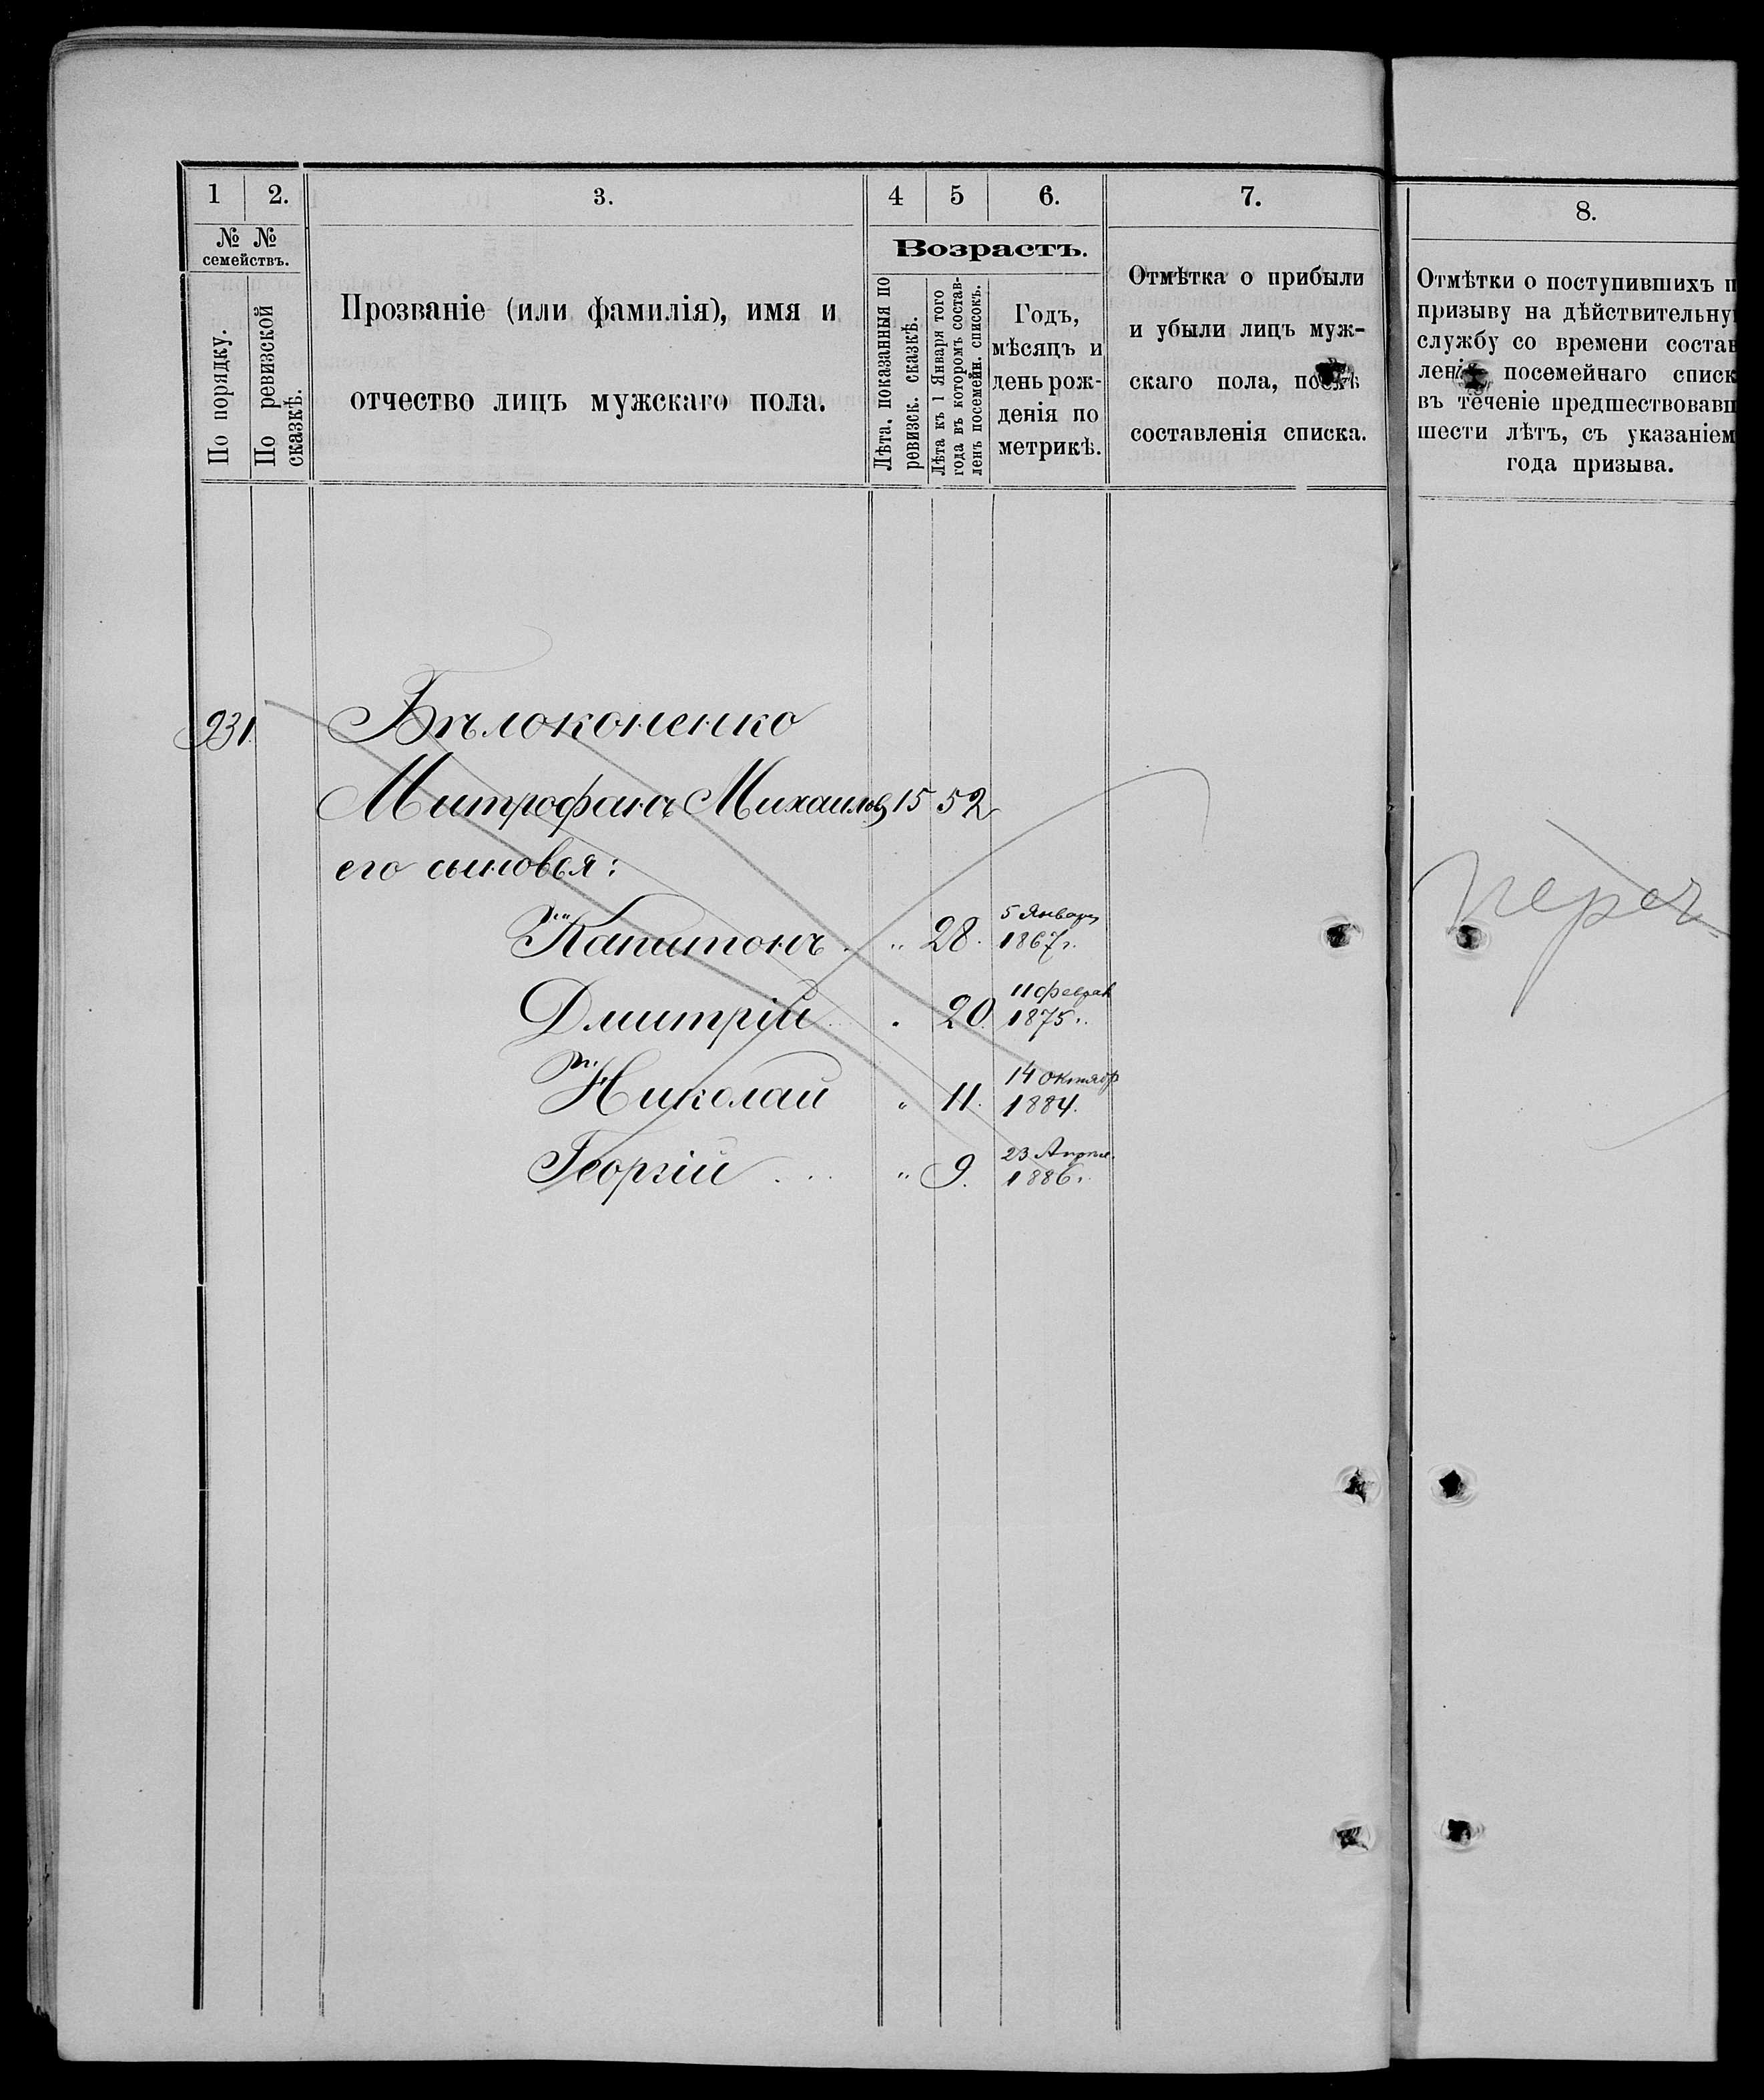 1 2. 3. 4 5 6. 7. 8.
№ №
семействъ.
По порядку.
По ревизской
сказкѣ.
Прозваніе (или фамилія), имя и
отчество лицъ мужскаго пола.
Возрастъ.
Лѣта, показанныя по
ревизск. сказкѣ.
Лѣта къ 1 Января того
года въ которомъ состав-
ленъ посемейн. списокъ.
Годъ,
мѣсяцъ и
день рож-
денія по
метрикѣ.
Отмѣтка о прибыли
и убыли лицъ муж-
скаго пола, послѣ
составленія списка.
Отмѣтки о поступившихъ п
призыву на дѣйствительну
службу со времени состав
ленія посемейнаго списк
въ теченіе предшествовавш
шести лѣтъ, съ указаніем
года призыва.
931. Бѣлоконенко
Митрофанъ Михаиловъ 15 52
его сыновья:
Капитонъ „ 28. 5 Января 1867 г.
Дмитрій . 20. 11 Феврал 1875 г.
Николай „ 11. 14 октябр 1884.
Георгій „ 9. 23 Апрѣл. 1886 г.